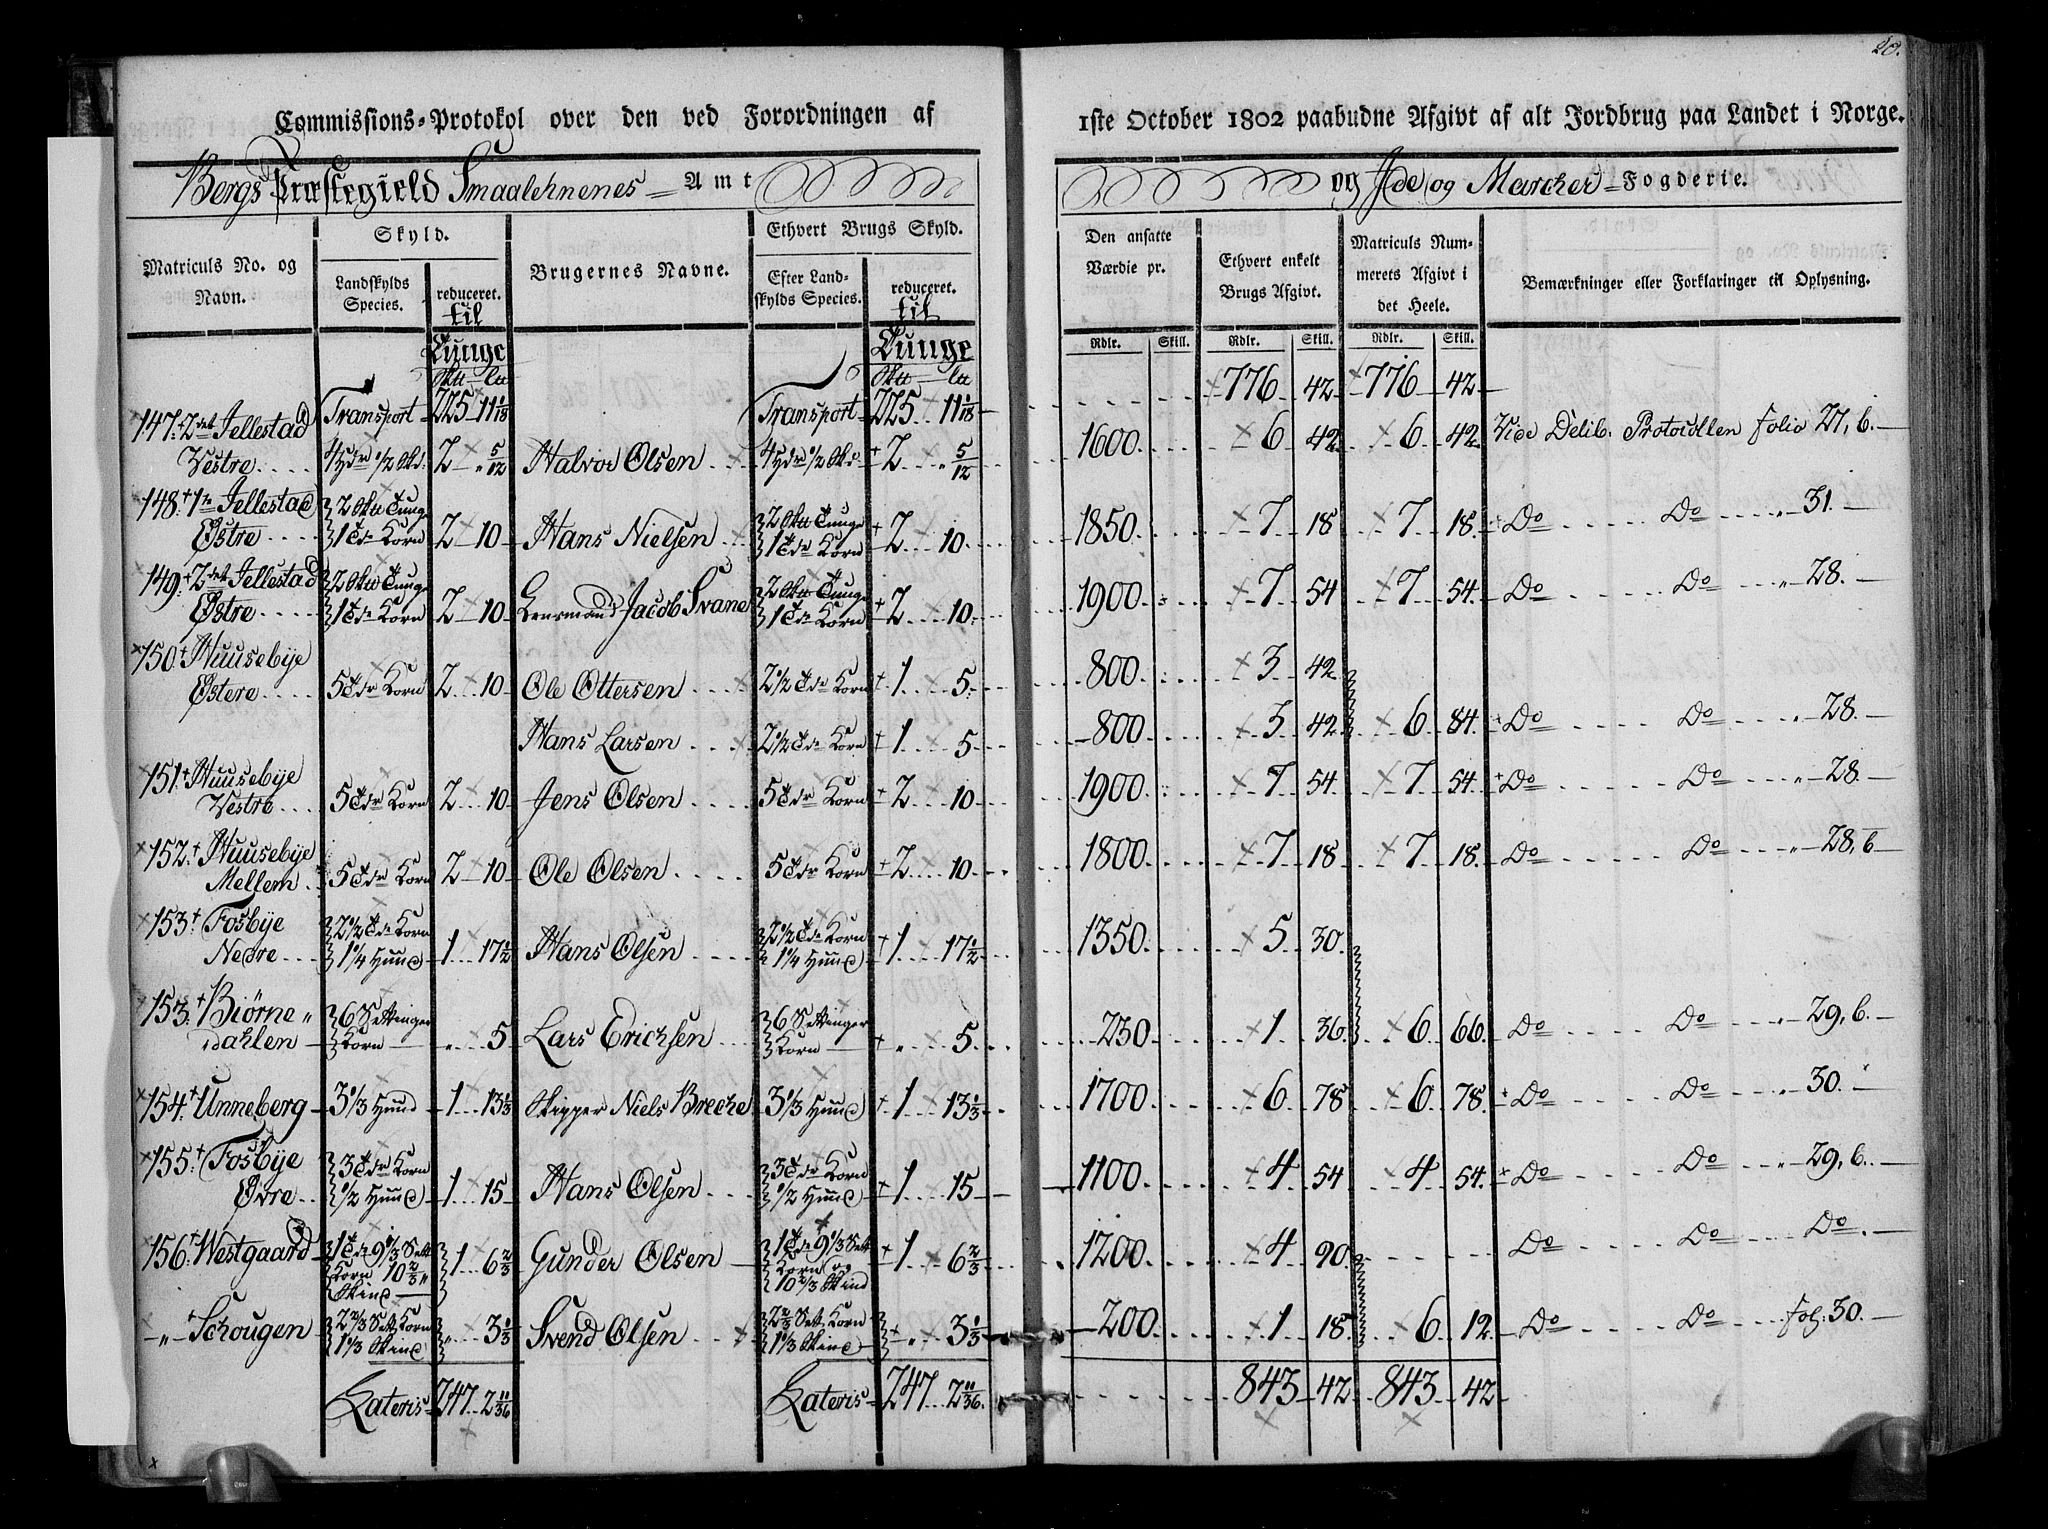 20.
Commissions-Protokol over den ved Forordningen af 1ste October 1802 paabudne Afgivt af alt Jordbrug paa Landet i Norge.
Bergs Præstegield Smaalehnenes Amt og Ide og Marcker Fogderie.
Matriculs No. og Navn. | Skyld. Landskylds Species. | reduceret. til Tunge | Brugernes Navne. | Ethvert Brugs Skyld. Efter Landskylds Species. | reduceret. til Tunge | Den ansatte Værdie pr. | Ethvert enkelt Brugs Afgivt. | Matriculs Nummerets Afgivt i det Heele. | Bemærkninger eller Forklaringer til Oplysning.
Rdlr. Skill. Rdlr. Skill. Rdlr. Skill.
Transport 225 11 1/18 | Transport 225 11 1/18 | 776 42 | 776 42
147. 2det Jellestad Vestre | 4 Hdr 1/2 Skd. | 2 " 5/12 | Halvor Olsen | 4 Hdr 1/2 Skd. | 2 " 5/12 | 1600 | 6 42 | 6 42 | Vide Delib. Protocollen folio 27, b.
148. 1te Jellestad Østre | 2 Sktt Tunge 1 Tde Korn | 2 10 | Hans Nielsen | 2 Sktt Tunge 1 Tde Korn | 2 10 | 1850 | 7 18 | 7 18 | Do Do " 31.
149. 2det Jellestad Østre | 2 Sktt Tunge 1 Tde Korn | 2 10 | Lensmand Jacob Svane | 2 Sktt Tunge 1 Tde Korn | 2 10 | 1900 | 7 54 | 7 54 | Do Do " 28.
150. Huusebye Østere | 5 Tdr Korn | 2 10 | Ole Ottersen | 2 1/2 Tde Korn | 1 5 | 800 | 3 42
Hans Larsen | 2 1/2 Tde Korn | 1 5 | 800 | 3 42 | 6 84 | Do Do " 28.
151. Huusebye Vestre | 5 Tdr Korn | 2 10 | Jens Olsen | 5 Tdr Korn | 2 10 | 1900 | 7 54 | 7 54 | Do Do " 28.
152. Huusebye Mellem | 5 Tdr Korn | 2 10 | Ole Olsen | 5 Tdr Korn | 2 10 | 1800 | 7 18 | 7 18 | Do Do " 28, b
153. Fosbye Nedre | 2 1/2 Tde Korn 1 1/4 Huud | 1 17 1/2 | Hans Olsen | 2 1/2 Tde Korn 1 1/4 Huud | 1 17 1/2 | 1350 | 5 30
153. Biørnedahlen | 6 Settinger Korn | " 5 | Lars Erichsen | 6 Settinger Korn | " 5 | 250 | 1 36 | 6 66 | Do Do " 29, b.
154. Unneberg | 3 1/3 Huud | 1 13 1/3 | Skipper Niels Brecke | 3 1/3 Huud | 1 13 1/3 | 1700 | 6 78 | 6 78 | Do Do 30.
155. Fosbye Øvre | 3 Tdr Korn 1/2 Huud | 1 15 | Hans Olsen | 3 Tdr Korn 1/2 Huud | 1 15 | 1100 | 4 54 | 4 54 | Do Do 29, b.
156. Westgaard | 1 Tde 9 1/3 Sett Korn 10 2/3 Skind | 1 6 2/3 | Gunder Olsen | 1 Tde 9 1/3 Sett Korn og 10 2/3 Skind | 1 6 2/3 | 1200 | 4 90 | Do Do Do.
" Schougen | 2 2/3 Sett Korn 1 1/3 Skind | " 3 1/3 | Svend Olsen | 2 2/3 Sett Korn 1 1/3 Skind | " 3 1/3 | 200 | 1 18 | 6 12 | Do Do fol: 30.
Lateris 247 2 11/36 | Lateris 247 2 11/36 | 843 42 | 843 42